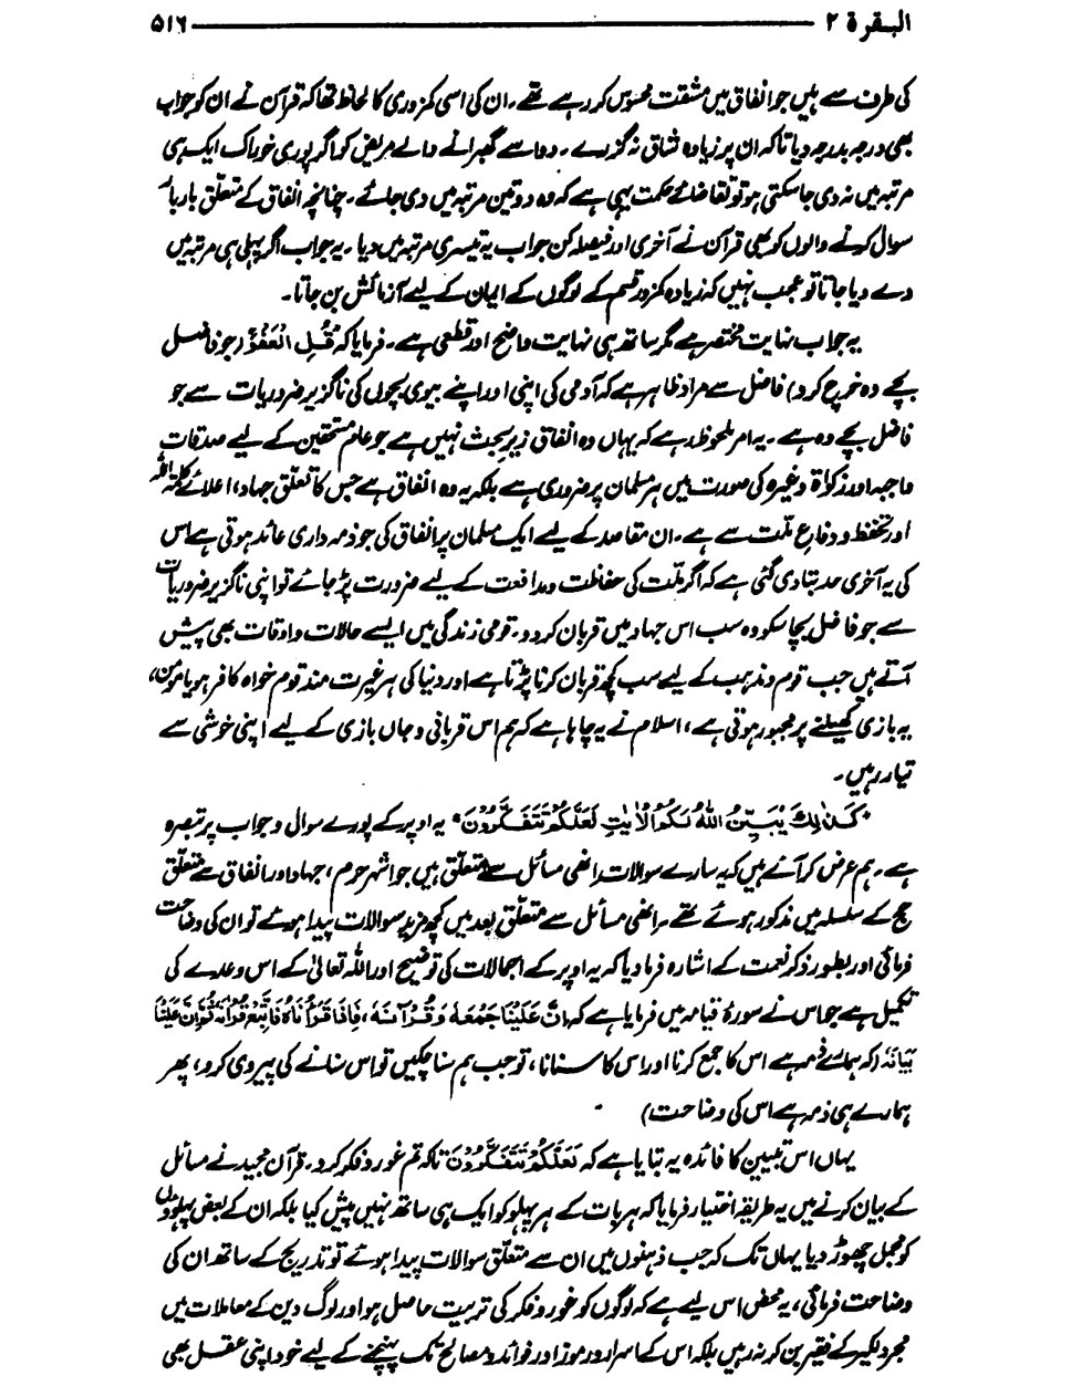 البقرة ۲ ۵۱۶
کی طرف سے ہیں جو انفاق میں مشقت محسوس کر رہے تھے۔ ان کی اسی کمزوری کا لحاظ تھا کہ قرآن نے ان کو جواب
بھی درجہ بدرجہ دیا تاکہ ان پر زیادہ شاق نہ گزرے۔ دوا سے گھبرانے والے مریض کو اگر پوری خوراک ایک ہی
مرتبہ میں نہ دی جا سکتی ہو تو تقاضائے حکمت یہی ہے کہ وہ دو تین مرتبہ میں دی جائے۔ چنانچہ انفاق کے متعلق بار بار
سوال کرنے والوں کو بھی قرآن نے آخری اور فیصلہ کن جواب یہ تیسری مرتبہ میں دیا۔ یہ جواب اگر پہلی ہی مرتبہ میں
دے دیا جاتا تو عجب نہیں کہ زیادہ کمزور قسم کے لوگوں کے ایمان کے لیے آزمائش بن جاتا۔
یہ جواب نہایت مختصر ہے مگر ساتھ ہی نہایت واضح اور قطعی ہے۔ فرمایا کہ قُلِ الْعَفْوَ (جو فاضل
بچے وہ خرچ کرو) فاضل سے مراد ظاہر ہے کہ آدمی کی اپنی اور اپنے بیوی بچوں کی ناگزیر ضروریات سے جو
فاضل بچے وہ ہے۔ یہ امر ملحوظ رہے کہ یہاں وہ انفاق زیر بحث نہیں ہے جو عام مستحقین کے لیے صدقات
واجبہ اور زکوٰۃ وغیرہ کی صورت میں ہر مسلمان پر ضروری ہے بلکہ یہ وہ انفاق ہے جس کا تعلق جہاد، اعلائے کلمۃ اللہ
اور تحفظ و دفاعِ ملّت سے ہے۔ ان مقاصد کے لیے ایک مسلمان پر انفاق کی جو ذمہ داری عائد ہوتی ہے اس
کی یہ آخری حد بتا دی گئی ہے کہ اگر ملّت کی حفاظت و مدافعت کے لیے ضرورت پڑ جائے تو اپنی ناگزیر ضروریات
سے جو فاضل بچا سکو وہ سب اس جہاد میں قربان کر دو۔ قومی زندگی میں ایسے حالات و اوقات بھی پیش
آتے ہیں جب قوم و مذہب کے لیے سب کچھ قربان کرنا پڑتا ہے اور دنیا کی ہر غیرت مند قوم خواہ کافر ہو یا مومن،
یہ بازی کھیلنے پر مجبور ہوتی ہے، اسلام نے یہ چاہا ہے کہ ہم اس قربانی و جاں بازی کے لیے اپنی خوشی سے
تیار رہیں۔
’کَذٰلِکَ یُبَیِّنُ اللّٰہُ لَکُمُ الْاٰیٰتِ لَعَلَّکُمْ تَتَفَکَّرُوْنَ‘ یہ اوپر کے پورے سوال و جواب پر تبصرہ
ہے۔ ہم عرض کر آئے ہیں کہ یہ سارے سوالات انھی مسائل سے متعلق ہیں جو اشہر حرم، جہاد اور انفاق سے متعلق
حج کے سلسلہ میں مذکور ہوئے تھے۔ انھی مسائل سے متعلق بعد میں کچھ مزید سوالات پیدا ہوئے تو ان کی وضاحت
فرمائی اور بطور ذکر نعمت کے اشارہ فرما دیا کہ یہ اوپر کے اجمالات کی توضیح اور اللہ تعالیٰ کے اس وعدے کی
تکمیل ہے جو اس نے سورۂ قیامہ میں فرمایا ہے کہ اِنَّ عَلَیْنَا جَمْعَہٗ وَ قُرْاٰنَہٗ، فَاِذَا قَرَاْنٰہُ فَاتَّبِعْ قُرْاٰنَہٗ ثُمَّ اِنَّ عَلَیْنَا
بَیَانَہٗ (کہ ہمارے ذمہ ہے اس کا جمع کرنا اور اس کا سنانا، تو جب ہم سنا چکیں تو اس سنانے کی پیروی کرو، پھر
ہمارے ہی ذمہ ہے اس کی وضاحت)
یہاں اس تبیین کا فائدہ یہ بتایا ہے کہ لَعَلَّکُمْ تَتَفَکَّرُوْنَ تاکہ تم غور و فکر کرو۔ قرآن مجید نے مسائل
کے بیان کرنے میں یہ طریقہ اختیار فرمایا کہ ہر بات کے ہر پہلو کو ایک ہی ساتھ نہیں پیش کیا بلکہ ان کے بعض پہلوؤں
کو مجمل چھوڑ دیا یہاں تک کہ جب ذہنوں میں ان سے متعلق سوالات پیدا ہوئے تو تدریج کے ساتھ ان کی
وضاحت فرمائی، یہ محض اس لیے ہے کہ لوگوں کو غور و فکر کی تربیت حاصل ہو اور لوگ دین کے معاملات میں
مجرد لکیر کے فقیر بن کر نہ رہیں بلکہ اس کے اسرار و رموز اور فوائد و مصالح تک پہنچنے کے لیے خود اپنی عقل بھی